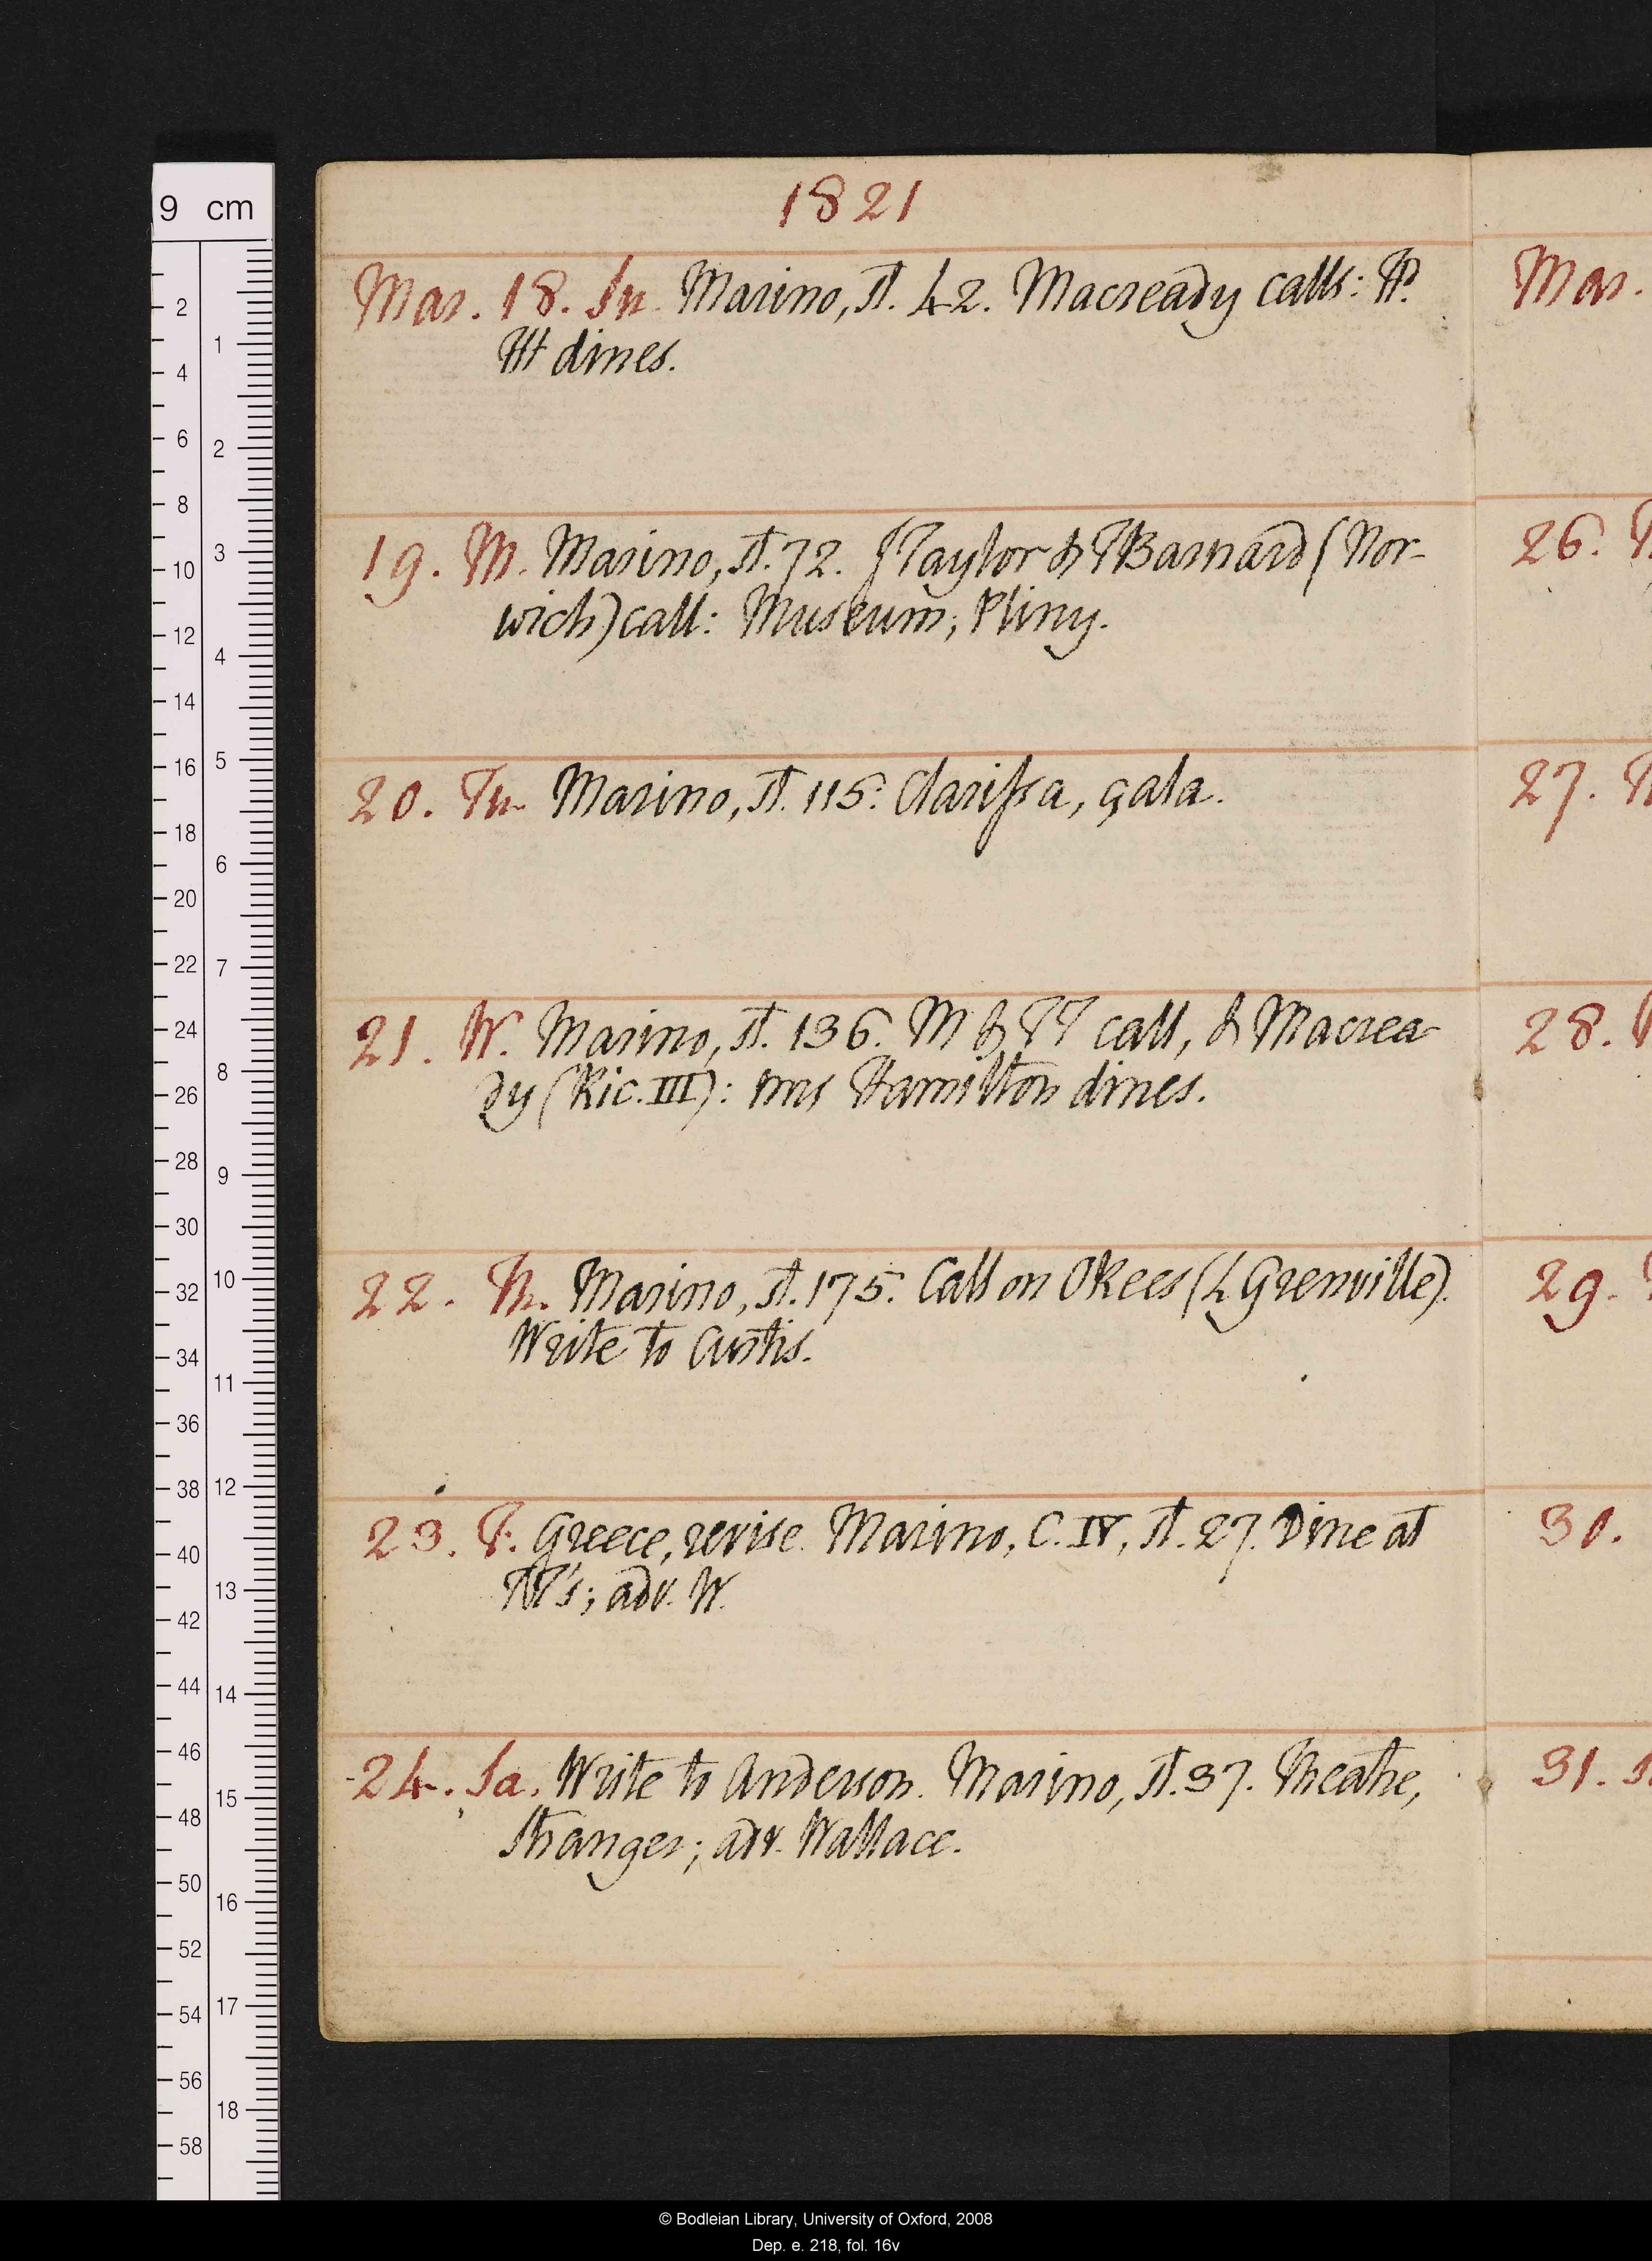 1821
Mar. 18. Su. Marino, st. 42. Macready calls: HP.
HH dines.
19. M. Marino, st. 72. J Taylor & T Barnard (Nor-
wich) call: Museum; Pliny.
20. Tu. Marino, st. 115: Clarissa, çala.
21. W. Marino, st. 136. M & TT call, & Macrea-
dy (Ric. III): mrs Hamilton dines.
22. Th. Marino, st. 175. Call on O Rees (L Grenville).
Write to Curtis.
23. F. Greece, revise. Marino, C. IV, st. 27. Dine at
adv. W.
24. Sa. Write to Anderson. Marino, st. 37. Theatre,
Stranger; adv. Wallace.
Mar.
26.
27.
28.
29.
30.
31.
9 cm
2
4
6
8
10
12
14
16
18
20
22
24
26
28
30
32
34
36
38
40
42
44
46
48
50
52
54
56
58
1
2
3
4
5
6
7
8
9
10
11
12
13
14
15
16
17
18
© Bodleian Library, University of Oxford, 2008
Dep. e. 218, fol. 16v